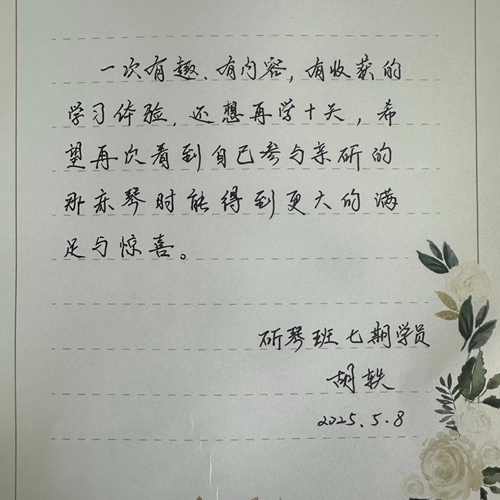 一次有趣、有内容，有收获的
学习体验，还想再学十天，希
望再次看到自己参与亲斫的
那床琴时能得到更大的满
足与惊喜。
斫琴班七期学员
胡轶
2025.5.8